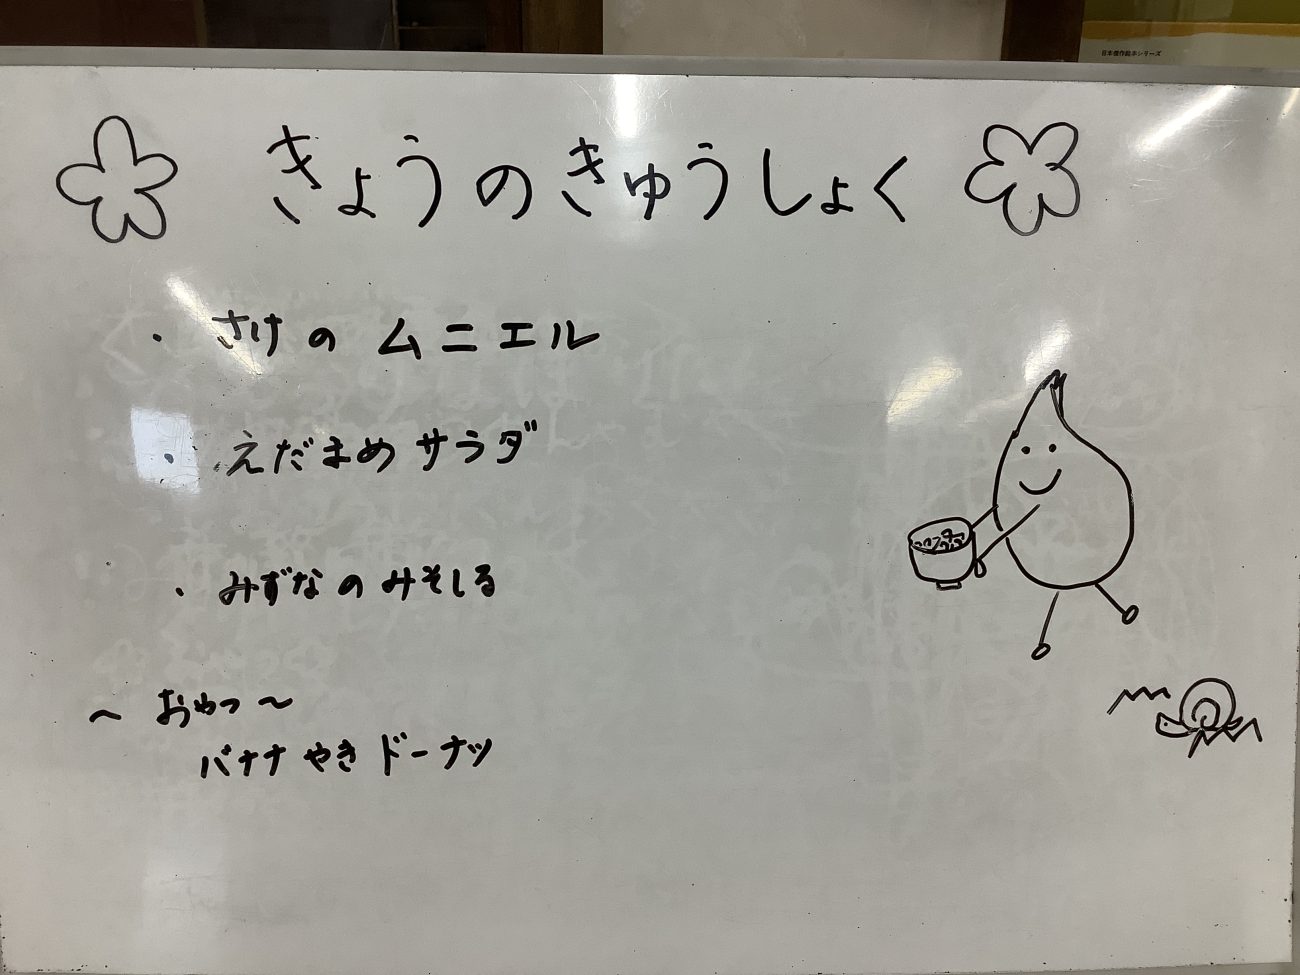 日本傑作絵本シリーズ
きょうのきゅうしょく
・ さけの ムニエル
・ えだまめ サラダ
・ みずなのみそしる
〜 おやつ 〜
バナナ やき ドーナツ